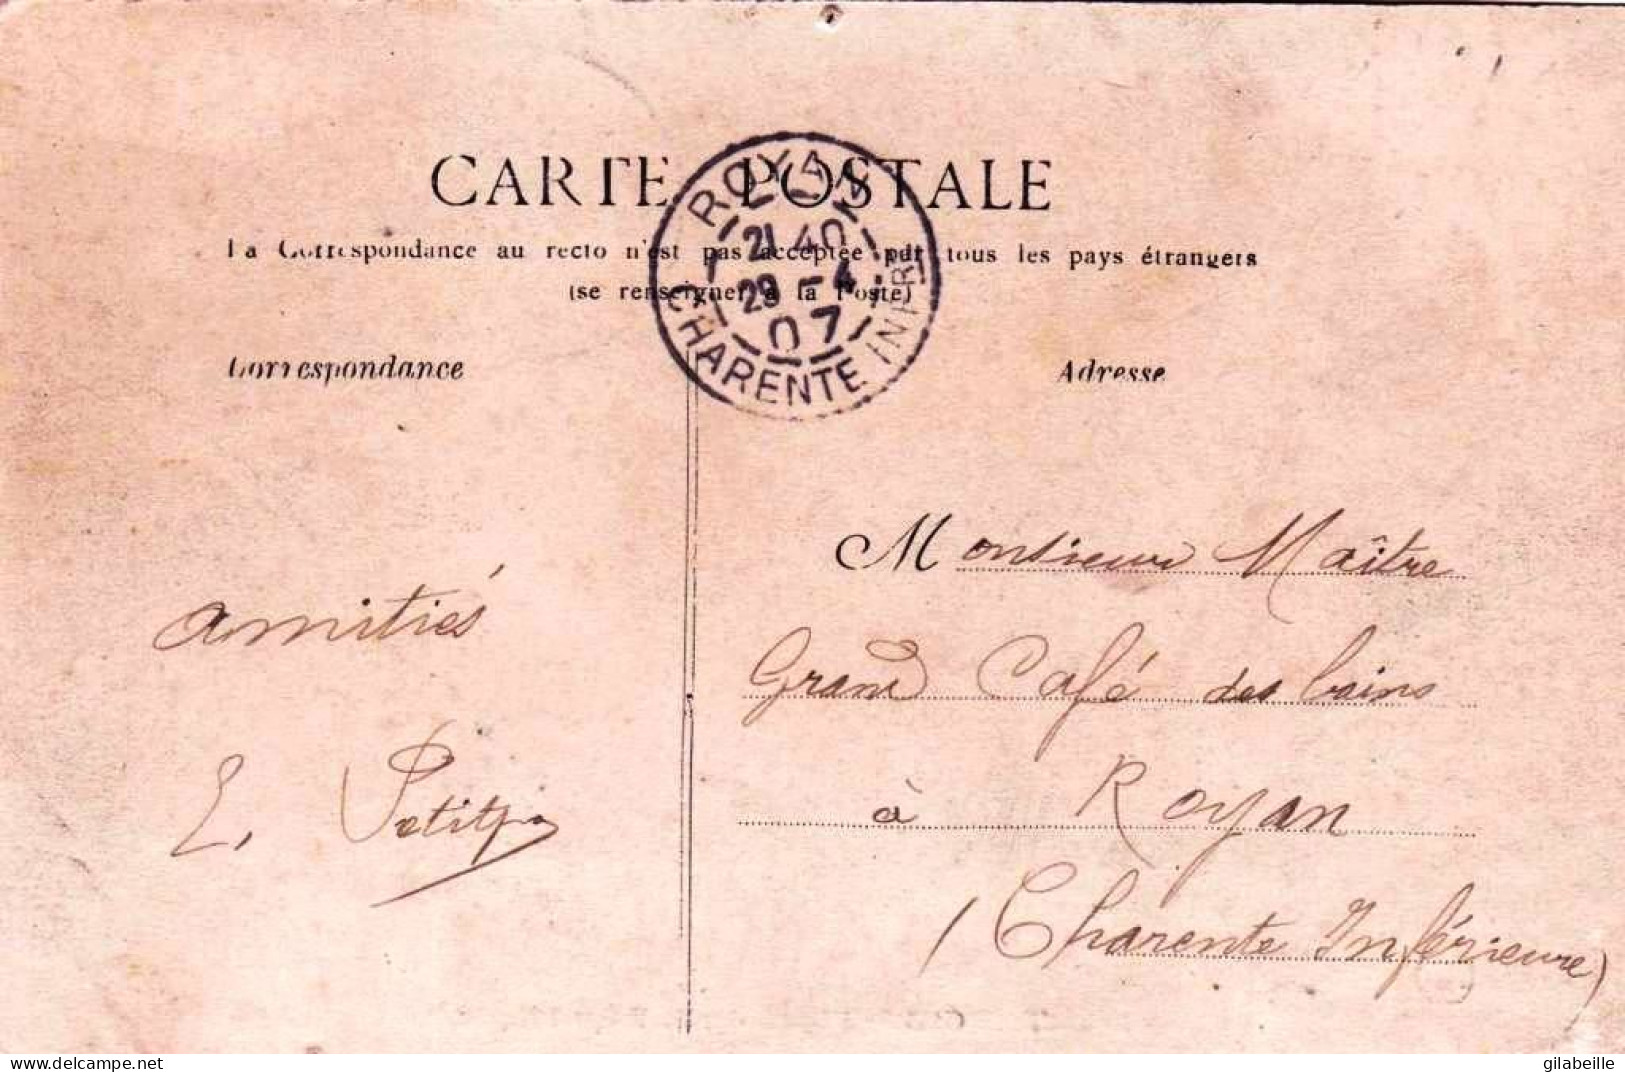 CARTE POSTALE
La Correspondance au recto n'est pas acceptée par tous les pays étrangers
(se renseigner à la Poste)
ROYAN
21 40
29 - 4
07
CHARENTE INFRE
Correspondance
Adresse
Monsieur Maître
Grand Café des bains
à Royan
(Charente Inférieure)
amitiés
E.
delcampe.net
gilabeille